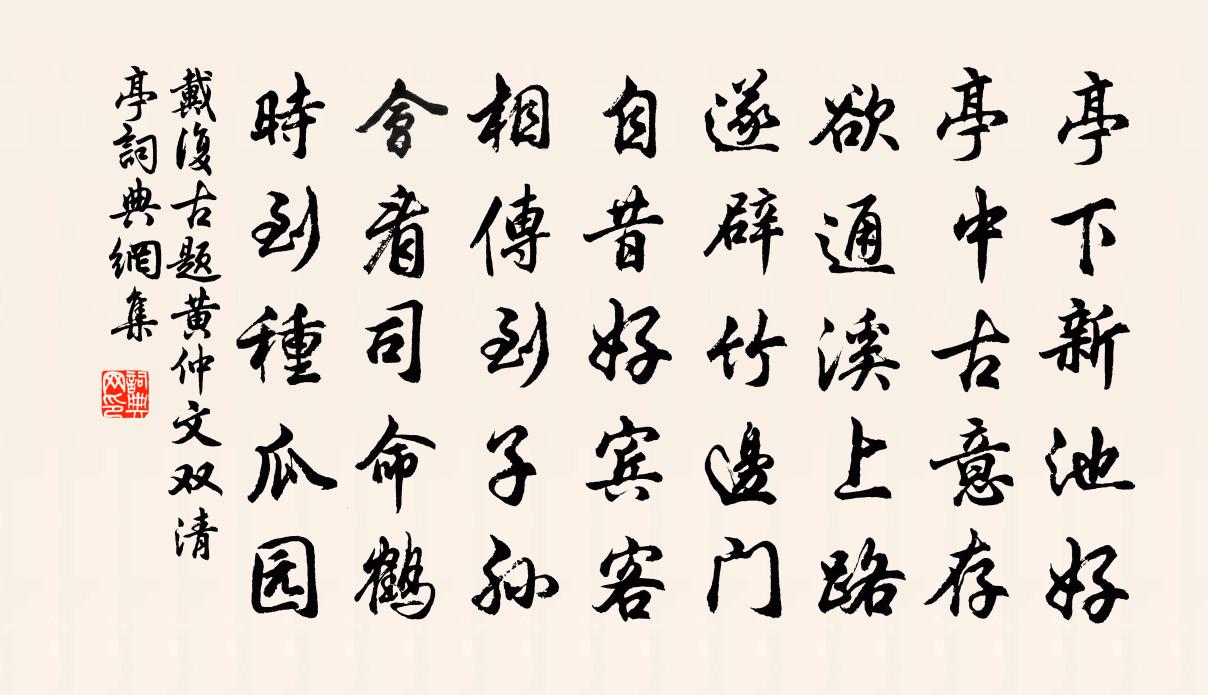 亭下新池好
亭中古意存
欲通溪上路
遂辟竹邊门
自昔好宾客
相傳到子孫
會看司命鶴
時到種瓜园
戴復古題黄仲文双清
亭詞典網集
詞典
网印